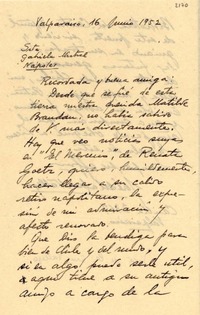 2170
Valparaíso, 16 Junio 1952
Srta.
Gabriela Mistral
Nápoles
Recordada y buena amiga:
Desde que se fué de esta
tierra nuestra querida Matilde
Brandau, no había sabido
de V. mas directamente.
Hoy, que veo noticias suyas
en "El Mercurio", de Renato
hacer llegar a su
retiro napolitano, la expre-
sión de mi admiración y
afecto renovado.
Que Dios la bendiga para
bien de Chile y del mundo, y
si en algo puedo serle útil,
aquí tiene a su antiguo
amigo a cargo de la